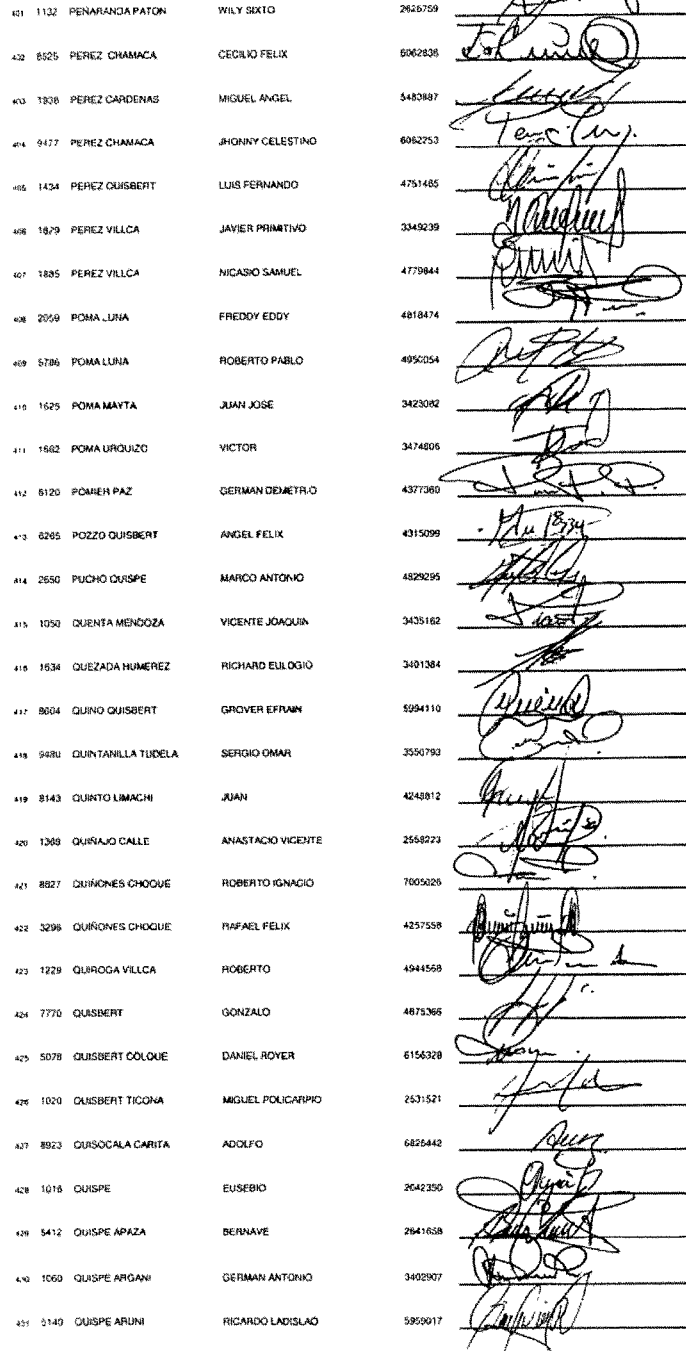 401 1132 PEÑARANDA PATON WILY SIXTO 2626759
402 8525 PEREZ CHAMACA CECILIO FELIX 6062836
403 1938 PEREZ CARDENAS MIGUEL ANGEL 5483887
404 9477 PEREZ CHAMACA JHONNY CELESTINO 6062253
405 1434 PEREZ QUISBERT LUIS FERNANDO 4751465
406 1829 PEREZ VILLCA JAVIER PRIMITIVO 3349239
407 1885 PEREZ VILLCA NICASIO SAMUEL 4779844
408 2059 POMA LUNA FREDDY EDDY 4818474
409 5786 POMA LUNA ROBERTO PABLO 4950054
410 1625 POMA MAYTA JUAN JOSE 3423062
411 1662 POMA URQUIZO VICTOR 3474806
412 6120 POMIER PAZ GERMAN DEMETRIO 4377360
413 6265 POZZO QUISBERT ANGEL FELIX 4315099
414 2650 PUCHO QUISPE MARCO ANTONIO 4829295
415 1050 QUENTA MENDOZA VICENTE JOAQUIN 3435162
416 1634 QUEZADA HUMEREZ RICHARD EULOGIO 3401384
417 8604 QUINO QUISBERT GROVER EFRAIN 5994110
418 9480 QUINTANILLA TUDELA SERGIO OMAR 3550793
419 8143 QUINTO LIMACHI JUAN 4248812
420 1369 QUIÑAJO CALLE ANASTACIO VICENTE 2558223
421 8827 QUIÑONES CHOQUE ROBERTO IGNACIO 7005026
422 3296 QUIÑONES CHOQUE RAFAEL FELIX 4257558
423 1229 QUIROGA VILLCA ROBERTO 4944568
424 7770 QUISBERT GONZALO 4875366
425 5078 QUISBERT COLQUE DANIEL ROYER 6156328
426 1020 QUISBERT TICONA MIGUEL POLICARPIO 2531521
427 8923 QUISOCALA CARITA ADOLFO 6825442
428 1016 QUISPE EUSEBIO 2042350
429 5412 QUISPE APAZA BERNAVE 2641658
430 1060 QUISPE ARGANI GERMAN ANTONIO 3402907
431 5140 QUISPE ARUNI RICARDO LADISLAO 5959017